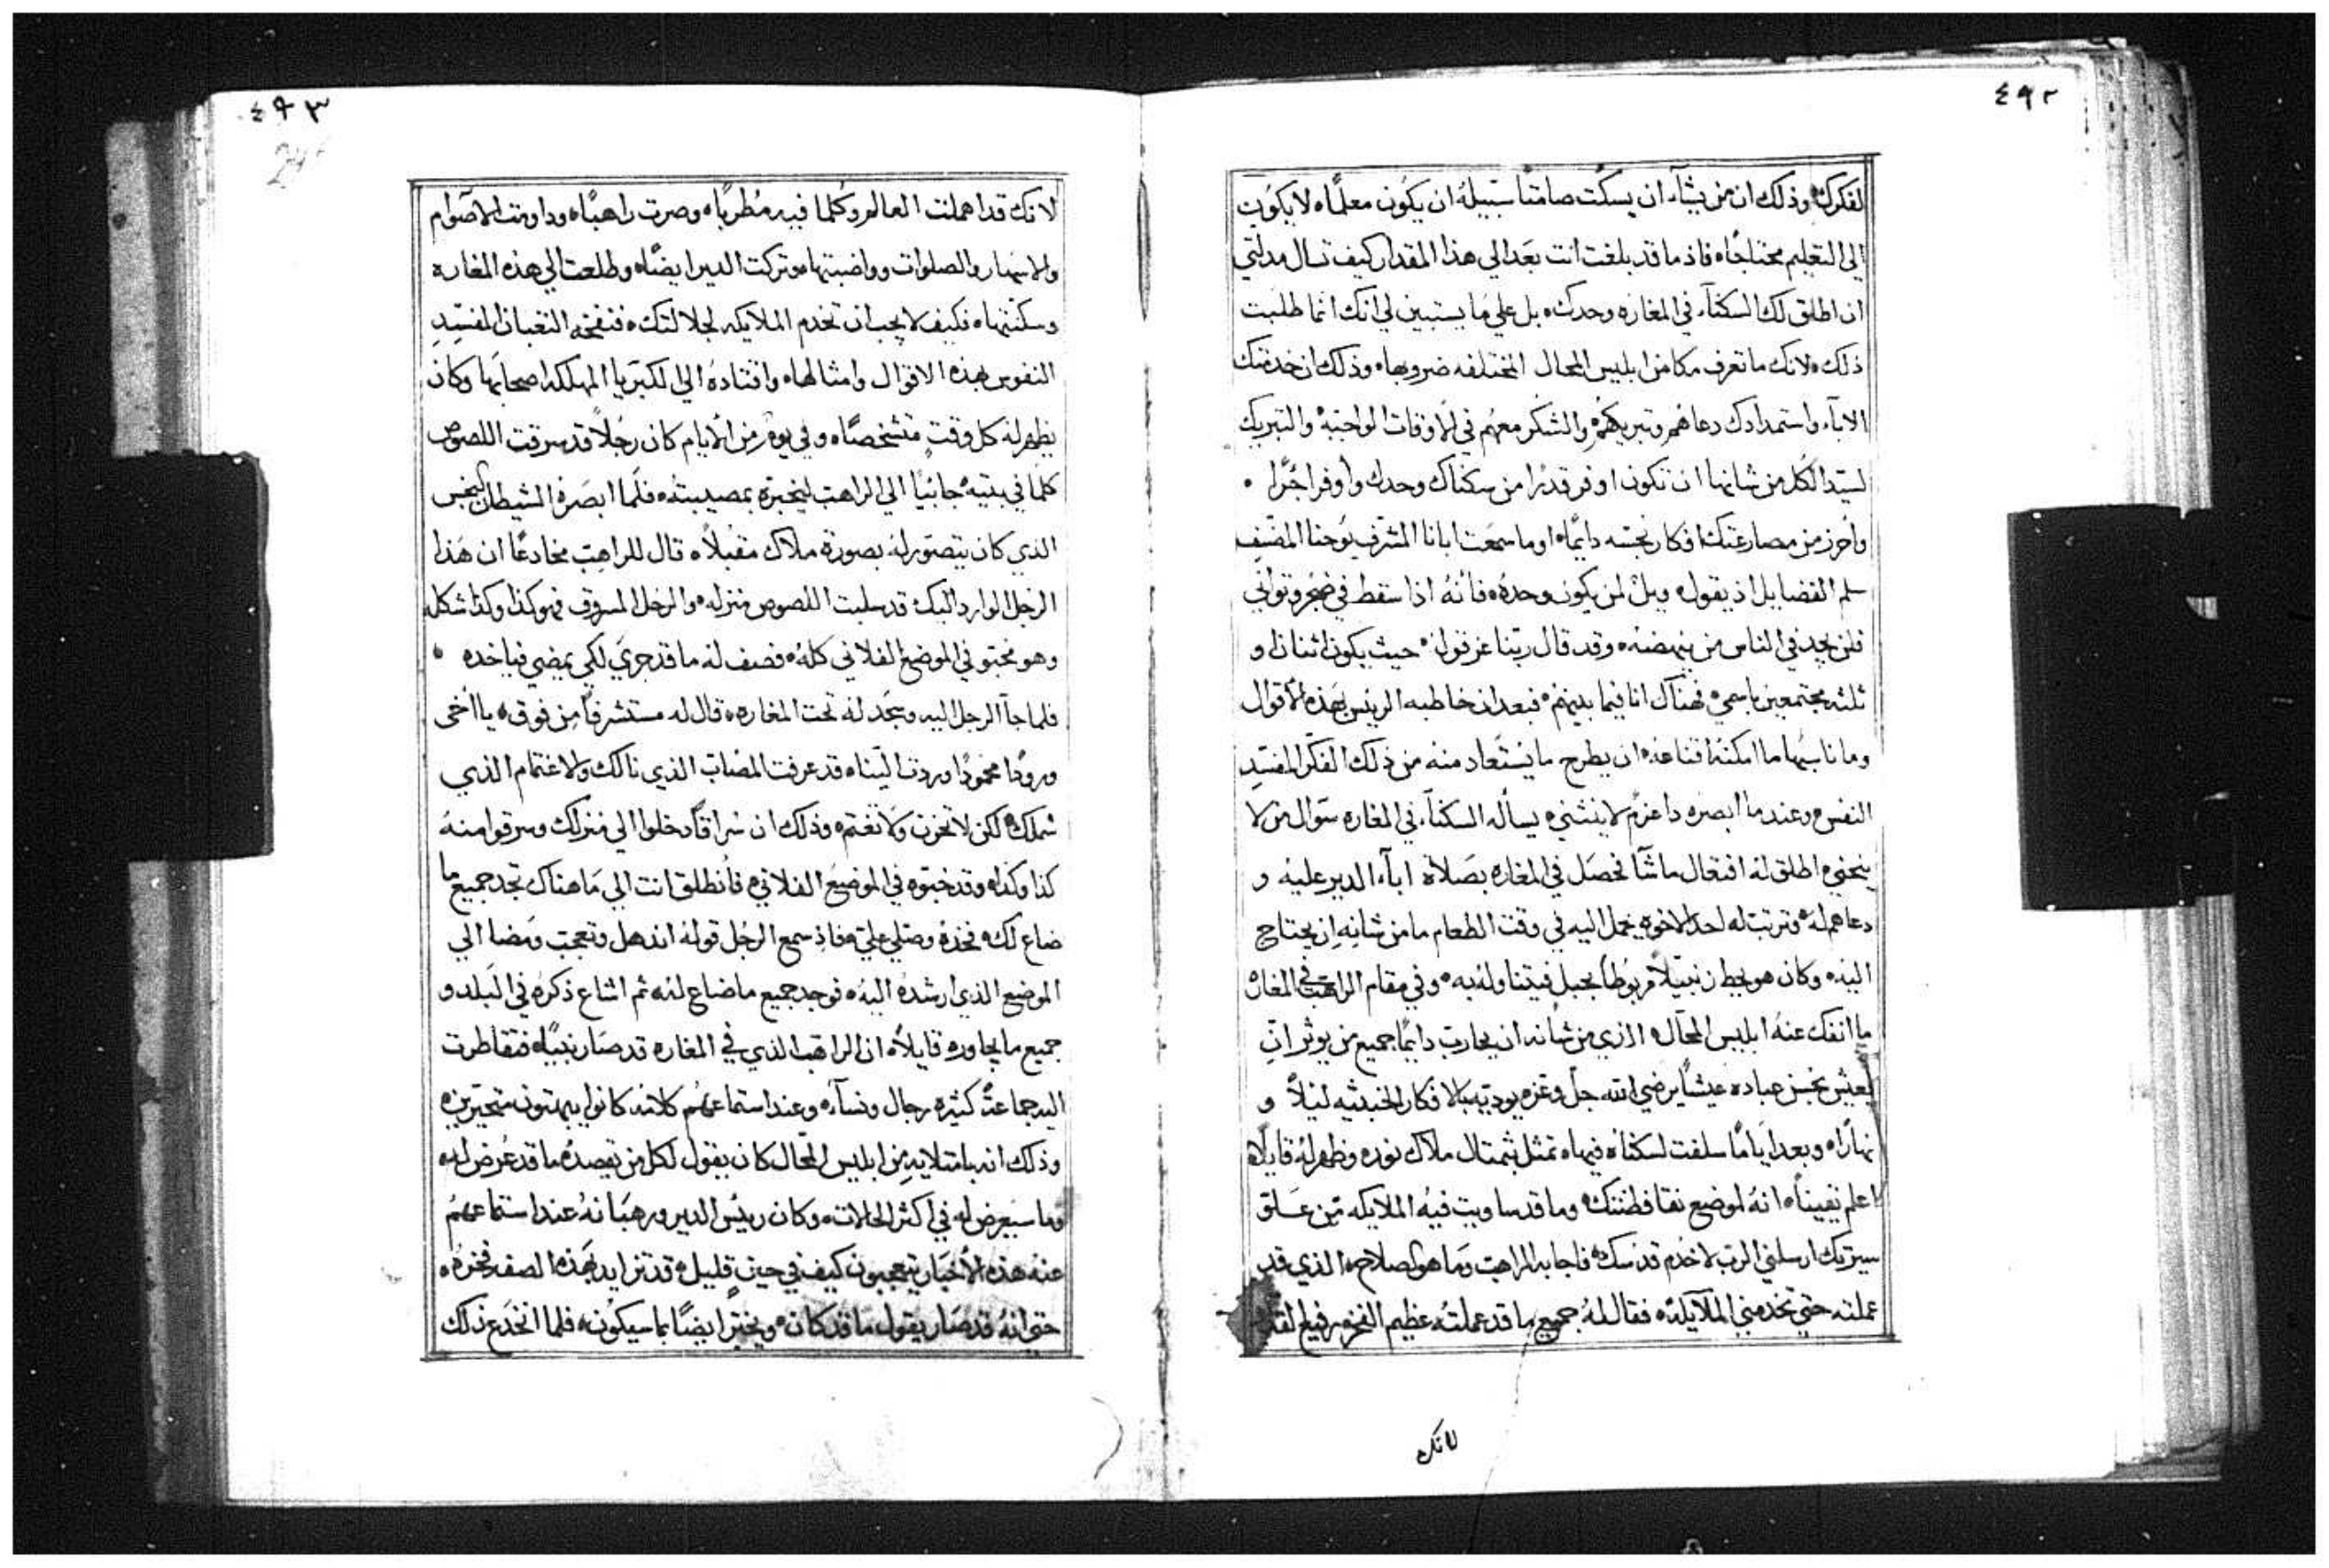 ٤٩٢
لفكرك، وذلك ان من يشآء ان يسكت صامتًا سبيلهُ ان يكون معلمًا، لا يكون
الي التعليم محتاجًا، فاذ ما قد بلغت انت بَعد الي هذا المقدار كيف تسال مدلتي
ان اطلق لك السكنآء في المغاره وحدك، بل علي ما يستبين لي انك انما طلبت
ذلك، لانك ما تعرف مكامن ابليس المحال المختلفه ضروبها، وذلك ان خدمتك
الابآء واستمدادك دعاهم وتبريكهم والشكر معهم في الاوقات الواجبة والتبريك
لسيد الكل من شانها ان تكون اوفر قدرًا من سكناك وحدك واوفر اجرًا ،
واحرز من مصارعتك افكار نجسه دايمًا، اوما سمعت ابانا المشرف يوحنا المصنف
سلم الفضايل اذ يقول، ويلٌ لمن يكون وحدهُ، فانهُ اذا سقط في ضجر وتواني
فلن يجد في الناس من ينهضه، وقد قال ربنا عز قوله، حيث يكون اثنان او
ثلثه مجتمعين باسمي، فهناك انا فيما بينهم، فبعد ان خاطبه الريس بهذه الاقوال
وما ناسبها ما امكنهُ اقناعه، ان يطرح ما يستعاد منه من ذلك الفكر المفسد
النفس، وعندما ابصره ذا عزم لا ينثني، يساله السكنآء في المغاره سوال من لا
ينحني، اطلق له افتعال ما شآء فحصل في المغاره بصلاة ابآء الدير عليه و
دعاهم لهُ، وترتب له احد الاخوه يحمل اليه في وقت الطعام ما من شانه ان يحتاج
اليه، وكان هو يحط زنبيلاً مربوطًا بحبل فيتناوله به، وفي مقام الراهب في المغاره
ما انفك عنهُ ابليس المحال، الذي من شانه ان يحارب دايمًا جميع من يوثر ان
يعيش بحسن عباده عيشًا يرضي الله جلّ وعزه يوديه بالافكار الخبيثه ليلاً و
نهارًا، وبعد ايامًا سلفت لسكناه فيها، تمثل بتمثال ملاك نور، وظهر لهُ قايلاً،
اعلم يقينًا، انهُ لموضع نقا فطنتك، وما قد ساويت فيهُ الملايكه من عَلق
سيرتك ارسلني الرب لاخدم قدسك، فاجابه الراهب، وما هو الصلاح، الذي قد
عملته حتي تخدمني الملآيكه، فقال لهُ، جميع ما قد عملتهُ، عظيم الفخر، رفيع القدر
لانك
٤٩٣
لانك قد اهملت العالم وكلما فيه مُطربًا، وصرت راهبًا، وداومت الاصوام
والاسهار والصلوات وواضبتها، وتركت الدير ايضًا، وطلعت الي هذه المغاره
وسكنتها، فكيف لا يجب ان تخدم الملايكه لجلالتك، فنفخه الثعبان المفسد
النفوس بهذه الاقوال وامثالها، واقتاده الي الكبريا المهلكه اصحابها وكان
يظهر له كل وقتٍ متشخصًا، وفي يوم من الايام كان رجُلاً قد سرقت اللصوص
كلما في بيته، جائيًا الي الراهب ليخبره بمصيبته، فلما ابصره الشيطان النجس
الذي كان يتصور له بصورة ملاك مقبلاً، قال للراهب مخادعًا ان هَذا
الرجل الوارد اليك قد سلبت اللصوص منزله، والرحل المسروق فهو كذا وكذا شكله
وهو مخبّو في الموضع الفلاني كلهُ، فصف له ما قد جري، لكي يمضي فياخده ،
فلما جآ الرجل اليه وسجد لهُ تحت المغاره، قال له مستشرفًا من فوق، يا اخي
ورودًا محمودًا وردت الينا، قد عرفت المصاب الذي نالك والاغتمام الذي
شملك، لكن لا تحزن ولا تغتم، وذلك ان سُراقًا دخلوا الي منزلك وسرقوا منهُ
كذا وكذا، وقد خبّوه في الموضع الفلاني، فانطلق انت الي مَا هناك تجد جميع ما
ضاع لك، فخذهُ وصلي عليّ، فاذ سمع الرجُل قولهُ انذهل وتعجب ومضا الي
الموضع الذي ارشدهُ اليه، فوجد جميع ما ضاع له، ثم اشاع ذكرهُ في البلد و
جميع ما يجاوره قايلاً، ان الراهب الذي في المغاره قد صار نبيًا، فتقاطرت
اليه جماعةٌ كثيره رجال ونسآء، وعند استماعهم كلامه كانوا يبهتون متحيرين،
وذلك انه بامتلايه من ابليس المحال كان يقول لكل من يقصدهُ ما قد عَرض له،
وما سيعرض له في اكثر الحالات، وكان ريئس الدير ورهبانهُ عند استماعهم
عنه هذه الاخبار يتعجبون كيف في حين قليل، قد تزايد بهذه الصفه فخرهُ،
حتي انهُ قد صَار يقول ما قد كان، ويخبّر ايضًا بما سيكون، فلما انخدع ذلك